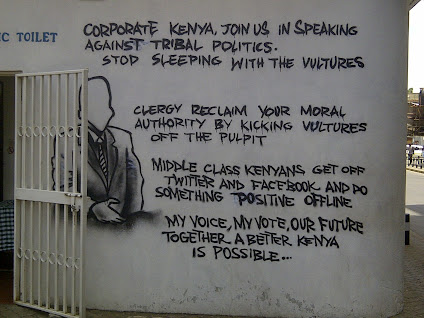 IC TOILET
CORPORATE KENYA, JOIN US IN SPEAKING
AGAINST TRIBAL POLITICS.
STOP SLEEPING WITH THE VULTURES
CLERGY RECLAIM YOUR MORAL
AUTHORITY BY KICKING VULTURES
OFF THE PULPIT
MIDDLE CLASS KENYANS GET OFF
TWITTER AND FACEBOOK AND DO
SOMETHING POSITIVE OFFLINE
MY VOICE, MY VOTE, OUR FUTURE
TOGETHER A BETTER KENYA
IS POSSIBLE...